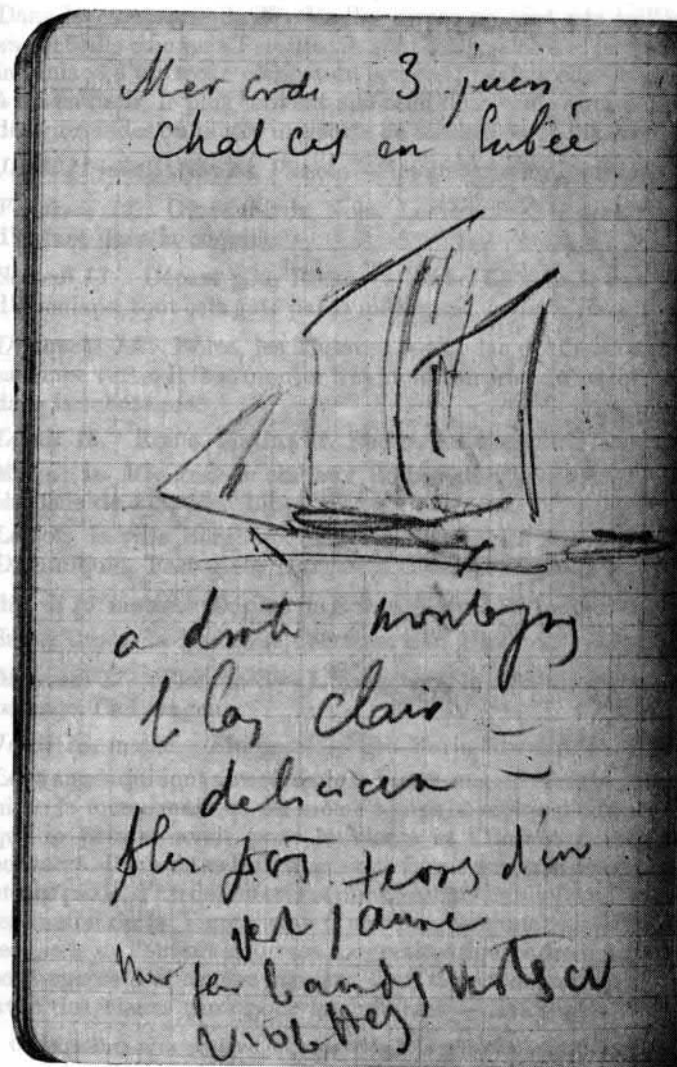 Mercredi 3 juin
Chalcis en Eubée
a droite montagnes
lilas clair
delicieux
plus près terres d'un
vert jaune
Mer par bandes vertes et
violettes